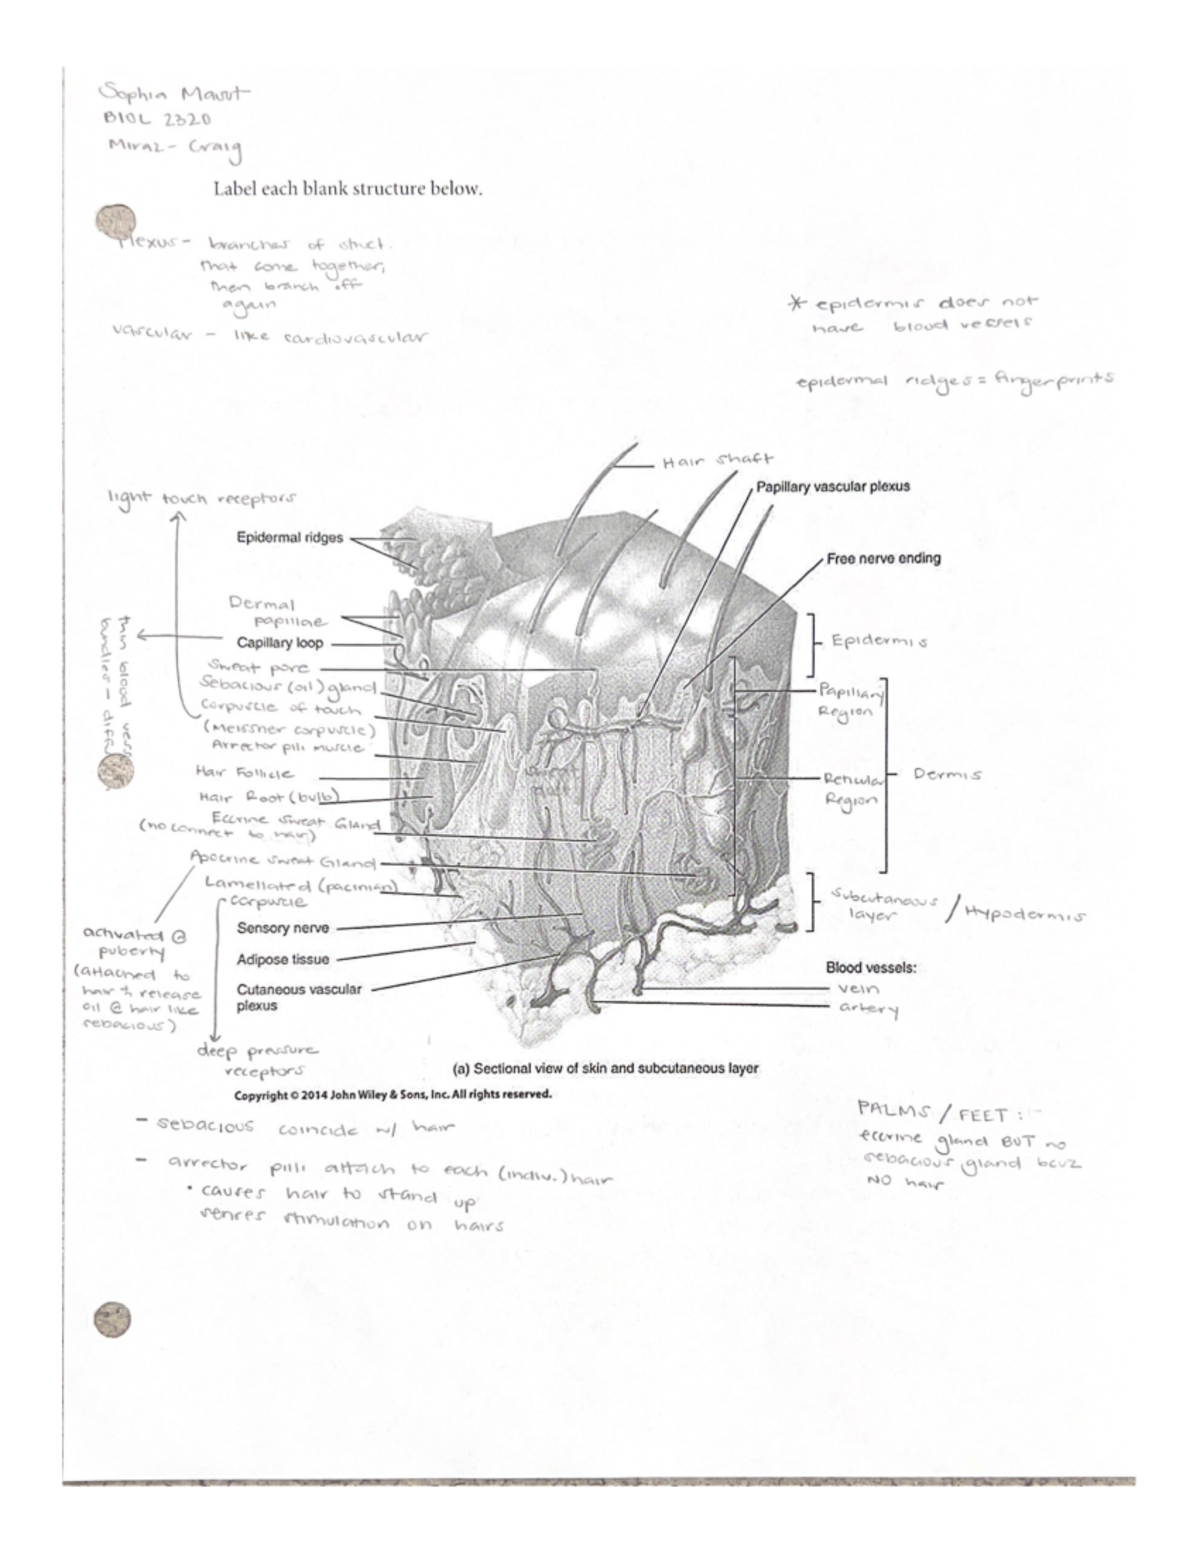 Sophia Mavot
BIOL 2320
Miraz - Craig
Label each blank structure below.
Plexus - branches of struct.
that come together,
then branch off
again
vascular - like cardiovascular
* epidermis does not
have blood vessels
epidermal ridges = fingerprints
Hair shaft
Papillary vascular plexus
light touch receptors
Epidermal ridges
Free nerve ending
Dermal
papillae
Capillary loop
thin blood vess
bundles - diff
Epidermis
Sweat pore
Sebacious (oil) gland
Corpuscle of touch
(Meissner corpuscle)
Arrector pili muscle
Hair Follicle
Hair Root (bulb)
Eccrine Sweat Gland
(no connect to hair)
Apocrine Sweat Gland
Lamellated (pacinian)
corpuscle
Papillary
Region
Reticular
Region
Dermis
Sweat
Subcutaneous
layer / Hypodermis
Sensory nerve
Adipose tissue
Cutaneous vascular
plexus
Blood vessels:
vein
artery
activated @
puberty
(attached to
hair & release
oil @ hair like
sebacious)
deep pressure
receptors
(a) Sectional view of skin and subcutaneous layer
Copyright © 2014 John Wiley & Sons, Inc. All rights reserved.
- sebacious coincide w/ hair
- arrector pili attach to each (indiv.) hair
• causes hair to stand up
senses stimulation on hairs
PALMS / FEET :
eccrine gland BUT no
sebacious gland bcuz
NO hair